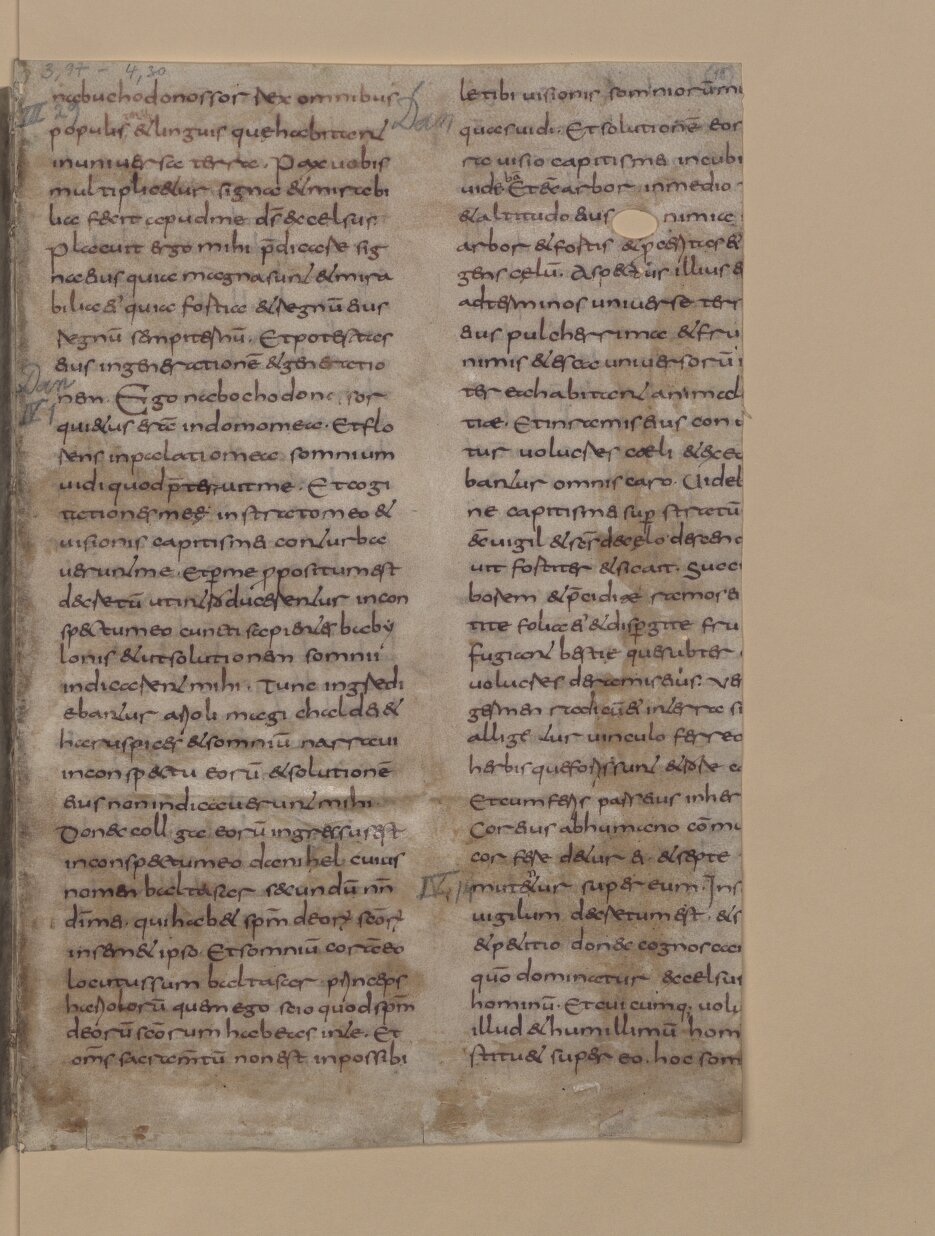 3,97 - 4,30
nabuchodonossor rex omnibus
populis & linguis quę habitant
in universa terra. Pax vobis
multiplic&ur signa & mirabi
lia fecit apud me ds excelsus.
Placuit ergo mihi p̄dicare sig
na eius quia magna sunt & mira
bilia ei' quia fortia & regnū eius
regnū sempiternū. Et potestas
eius in generationē & generatio
nem. Ego nabochodonossor
qui&us erā in domo mea. Et flo
rens in palatio meo somnium
vidi quod p̄terruit me. Et cogi
tationes meę in strato meo &
visionis capitis mei conturba
verunt me. Et p me ppositum est
decretū ut introducerentur in con
spectu meo cuncti sapientes baby
lonis & ut solutionem somnii
indicarent mihi. Tunc ingredi
ebantur arioli magi chaldei &
haruspices & somniū narravi
in conspectu eorū. & solutionē
eius non indicaverunt mihi.
Donec collega eorū ingressus est
in conspectu meo danihel cuius
nomen baltasar secundū nn
di mei. qui hab& spm deorꝝ scorꝝ
in semet ipso. Et somniū corā eo
locutus sum baltasar princeps
hariolorū quem ego scio quod spm
deorū scorum habeas in te. Et
om̄s sacramtū non est inpossibi
Dan
III 29
Dan
IV 1
(18)
le tibi visionis somniorū m
quas vidi. Et solutionē eor
ra visio capitis mei in cubi
videbā Et ecce arbor in medio
& altitudo eius nimia
arbor & fortis & pceritas ei
gens celū. Aspectus illius e
ad terminos universe ter
eius pulcherrima & fru
nimis & esca universorū i
ter ea habitant animal
tia. Et in ramis eius con
tur volucres caeli & ex ea
bantur omnis caro. Videb
ne capitis mei sup stratū
ecce vigil & scs de celo descen
vit fortiter & sic ait. Succi
borem & p̄cidite ramos ei
tite folia ei' & dispgite fru
fugiant bestie que subter
volucres de ramis eius. Ve
germen radicū ei in terra si
allig&ur vinculo ferreo
herbis que foris sunt & rore c
Et cum feris pars eius in her
Cor eius ab humano cōmu
cor fere d&ur ei. & septe
IV, 14
mut&ur super eum. In s
vigilum decretum est. & s
& petitio donec cognoscan
quō dominatur excelsus
hominū. Et cuicumq; volu
illud & humillimū hom
stitu& super eo. hoc som